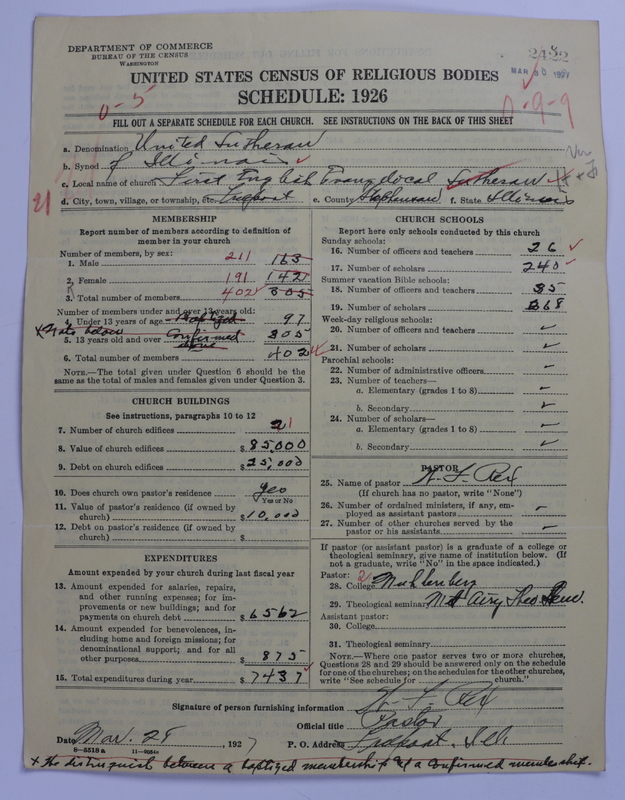 DEPARTMENT OF COMMERCE
BUREAU OF THE CENSUS
WASHINGTON
MAR 30 1927
UNITED STATES CENSUS OF RELIGIOUS BODIES
SCHEDULE: 1926
0-5
11-9-9
FILL OUT A SEPARATE SCHEDULE FOR EACH CHURCH. SEE INSTRUCTIONS ON THE BACK OF THIS SHEET
a. Denomination United Lutheran
b. Synod of Illinois
c. Local name of church First English Evangelical Lutheran
d. City, town, village, or township, etc. Freeport e. County Stephenson f. State Illinois
MEMBERSHIP
Report number of members according to definition of
member in your church
Number of members, by sex:
1. Male 211 163
2. Female 191 142
3. Total number of members 402 305
Number of members under and over 13 years old:
x Note below
4. Under 13 years of age Baptized 97
5. 13 years old and over Confirmed 305
6. Total number of members 402
NOTE.—The total given under Question 6 should be the
same as the total of males and females given under Question 3.
CHURCH BUILDINGS
See instructions, paragraphs 10 to 12
7. Number of church edifices 1
8. Value of church edifices $ 85,000
9. Debt on church edifices $ 25,000
10. Does church own pastor's residence Yes
Yes or No
11. Value of pastor's residence (if owned by
church) $ 10,000
12. Debt on pastor's residence (if owned by
church) $
EXPENDITURES
Amount expended by your church during last fiscal year
13. Amount expended for salaries, repairs,
and other running expenses; for im-
provements or new buildings; and for
payments on church debt $ 6562
14. Amount expended for benevolences, in-
cluding home and foreign missions; for
denominational support; and for all
other purposes $ 875
15. Total expenditures during year $ 7437
CHURCH SCHOOLS
Report here only schools conducted by this church
Sunday schools:
16. Number of officers and teachers 26
17. Number of scholars 240
Summer vacation Bible schools:
18. Number of officers and teachers 35
19. Number of scholars 268
Week-day religious schools:
20. Number of officers and teachers
21. Number of scholars
Parochial schools:
22. Number of administrative officers
23. Number of teachers—
a. Elementary (grades 1 to 8)
b. Secondary
24. Number of scholars—
a. Elementary (grades 1 to 8)
b. Secondary
PASTOR
25. Name of pastor H. L. Rex
(If church has no pastor, write "None")
26. Number of ordained ministers, if any, em-
ployed as assistant pastors
27. Number of other churches served by the
pastor or his assistants
If pastor (or assistant pastor) is a graduate of a college or
theological seminary, give name of institution below. (If
not a graduate, write "No" in the space indicated.)
Pastor: 2
28. College Muhlenberg
29. Theological seminary Mt Airy Theo Sem.
Assistant pastor:
30. College
31. Theological seminary
NOTE.—Where one pastor serves two or more churches,
Questions 28 and 29 should be answered only on the schedule
for one of the churches; on the schedules for the other churches,
write "See schedule for church."
Signature of person furnishing information H. L. Rex
Official title Pastor
Date Mar. 28, 1927 P. O. Address Freeport, Ill.
8—5518a
x To distinguish between a baptized membership & a confirmed membership.